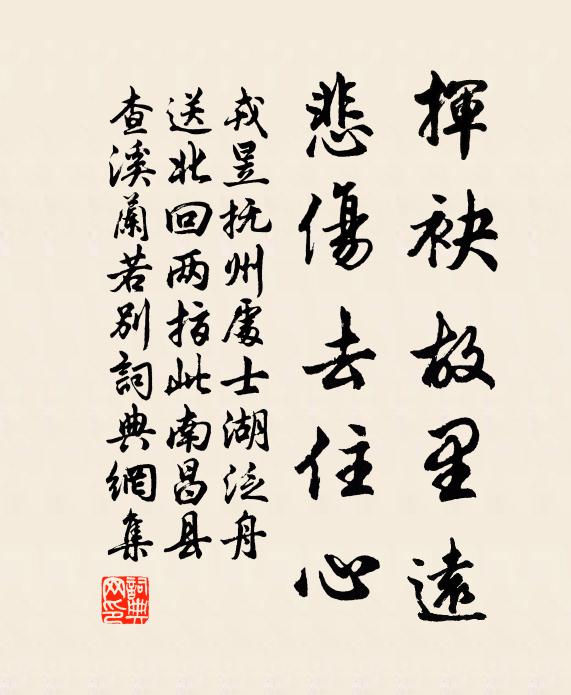 揮袂故里遠
悲傷去住心
戎昱抚州處士湖泛舟
送北回两指此南昌县
查溪蘭若別詞典網集
詞典网印